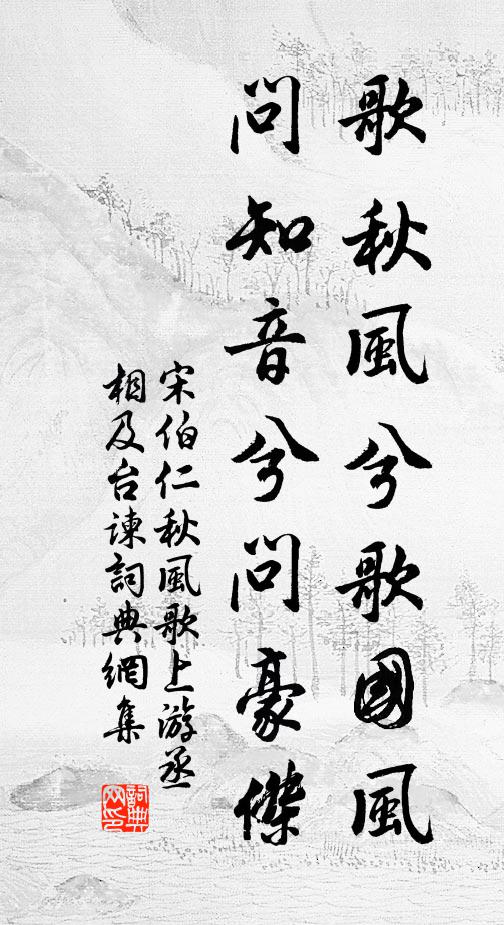 歌秋風兮歌國風
問知音兮問豪傑
宋伯仁秋風歌上游丞
相及台諫詞典網集
詞典
网印